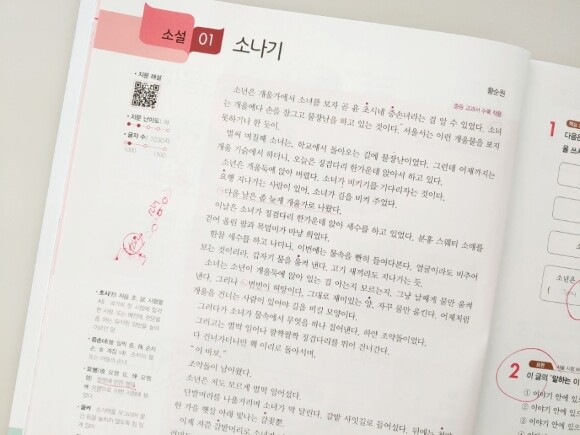 소설 01 소나기
황순원
중등 교과서 수록 작품
• 지문 해설
• 지문 난이도: 하
• 글자 수:
1000 1500
소년은 개울가에서 소녀를 보자 곧 윤 초시네 증손녀라는 걸 알 수 있었다. 소녀
는 개울에다 손을 잠그고 물장난을 하고 있는 것이다. 서울서는 이런 개울물을 보지
못하기나 한 듯이.
벌써 며칠째 소녀는, 학교에서 돌아오는 길에 물장난이었다. 그런데 어제까지는
개울 기슭에서 하더니, 오늘은 징검다리 한가운데 앉아서 하고 있다.
소년은 개울둑에 앉아 버렸다. 소녀가 비키기를 기다리자는 것이다.
요행 지나가는 사람이 있어, 소녀가 길을 비켜 주었다.
다음 날은 좀 늦게 개울가로 나왔다.
이날은 소녀가 징검다리 한가운데 앉아 세수를 하고 있었다. 분홍 스웨터 소매를
걷어 올린 팔과 목덜미가 마냥 희었다.
한참 세수를 하고 나더니, 이번에는 물속을 빤히 들여다본다. 얼굴이라도 비추어
보는 것이리라. 갑자기 물을 움켜 낸다. 고기 새끼라도 지나가는 듯.
소녀는 소년이 개울둑에 앉아 있는 걸 아는지 모르는지, 그냥 날쌔게 물만 움켜
낸다. 그러나 번번이 허탕이다. 그대로 재미있는 양, 자꾸 물만 움킨다. 어제처럼
개울을 건너는 사람이 있어야 길을 비킬 모양이다.
그러다가 소녀가 물속에서 무엇을 하나 집어낸다. 하얀 조약돌이었다.
그러고는 벌떡 일어나 팔짝팔짝 징검다리를 뛰어 건너간다.
다 건너가더니만 홱 이리로 돌아서며,
"이 바보."
조약돌이 날아왔다.
소년은 저도 모르게 벌떡 일어섰다.
단발머리를 나풀거리며 소녀가 막 달린다. 갈밭 사잇길로 들어섰다. 뒤에는
한 가을 햇살 아래 빛나는 갈꽃뿐.
이제 저쯤 갈밭머리로 소녀가
1
다음은
을 쓰시
소년은
2
표현
이 글의 '말하는 이
① 이야기 안에 있
② 이야기 안에 있
③ 이야기